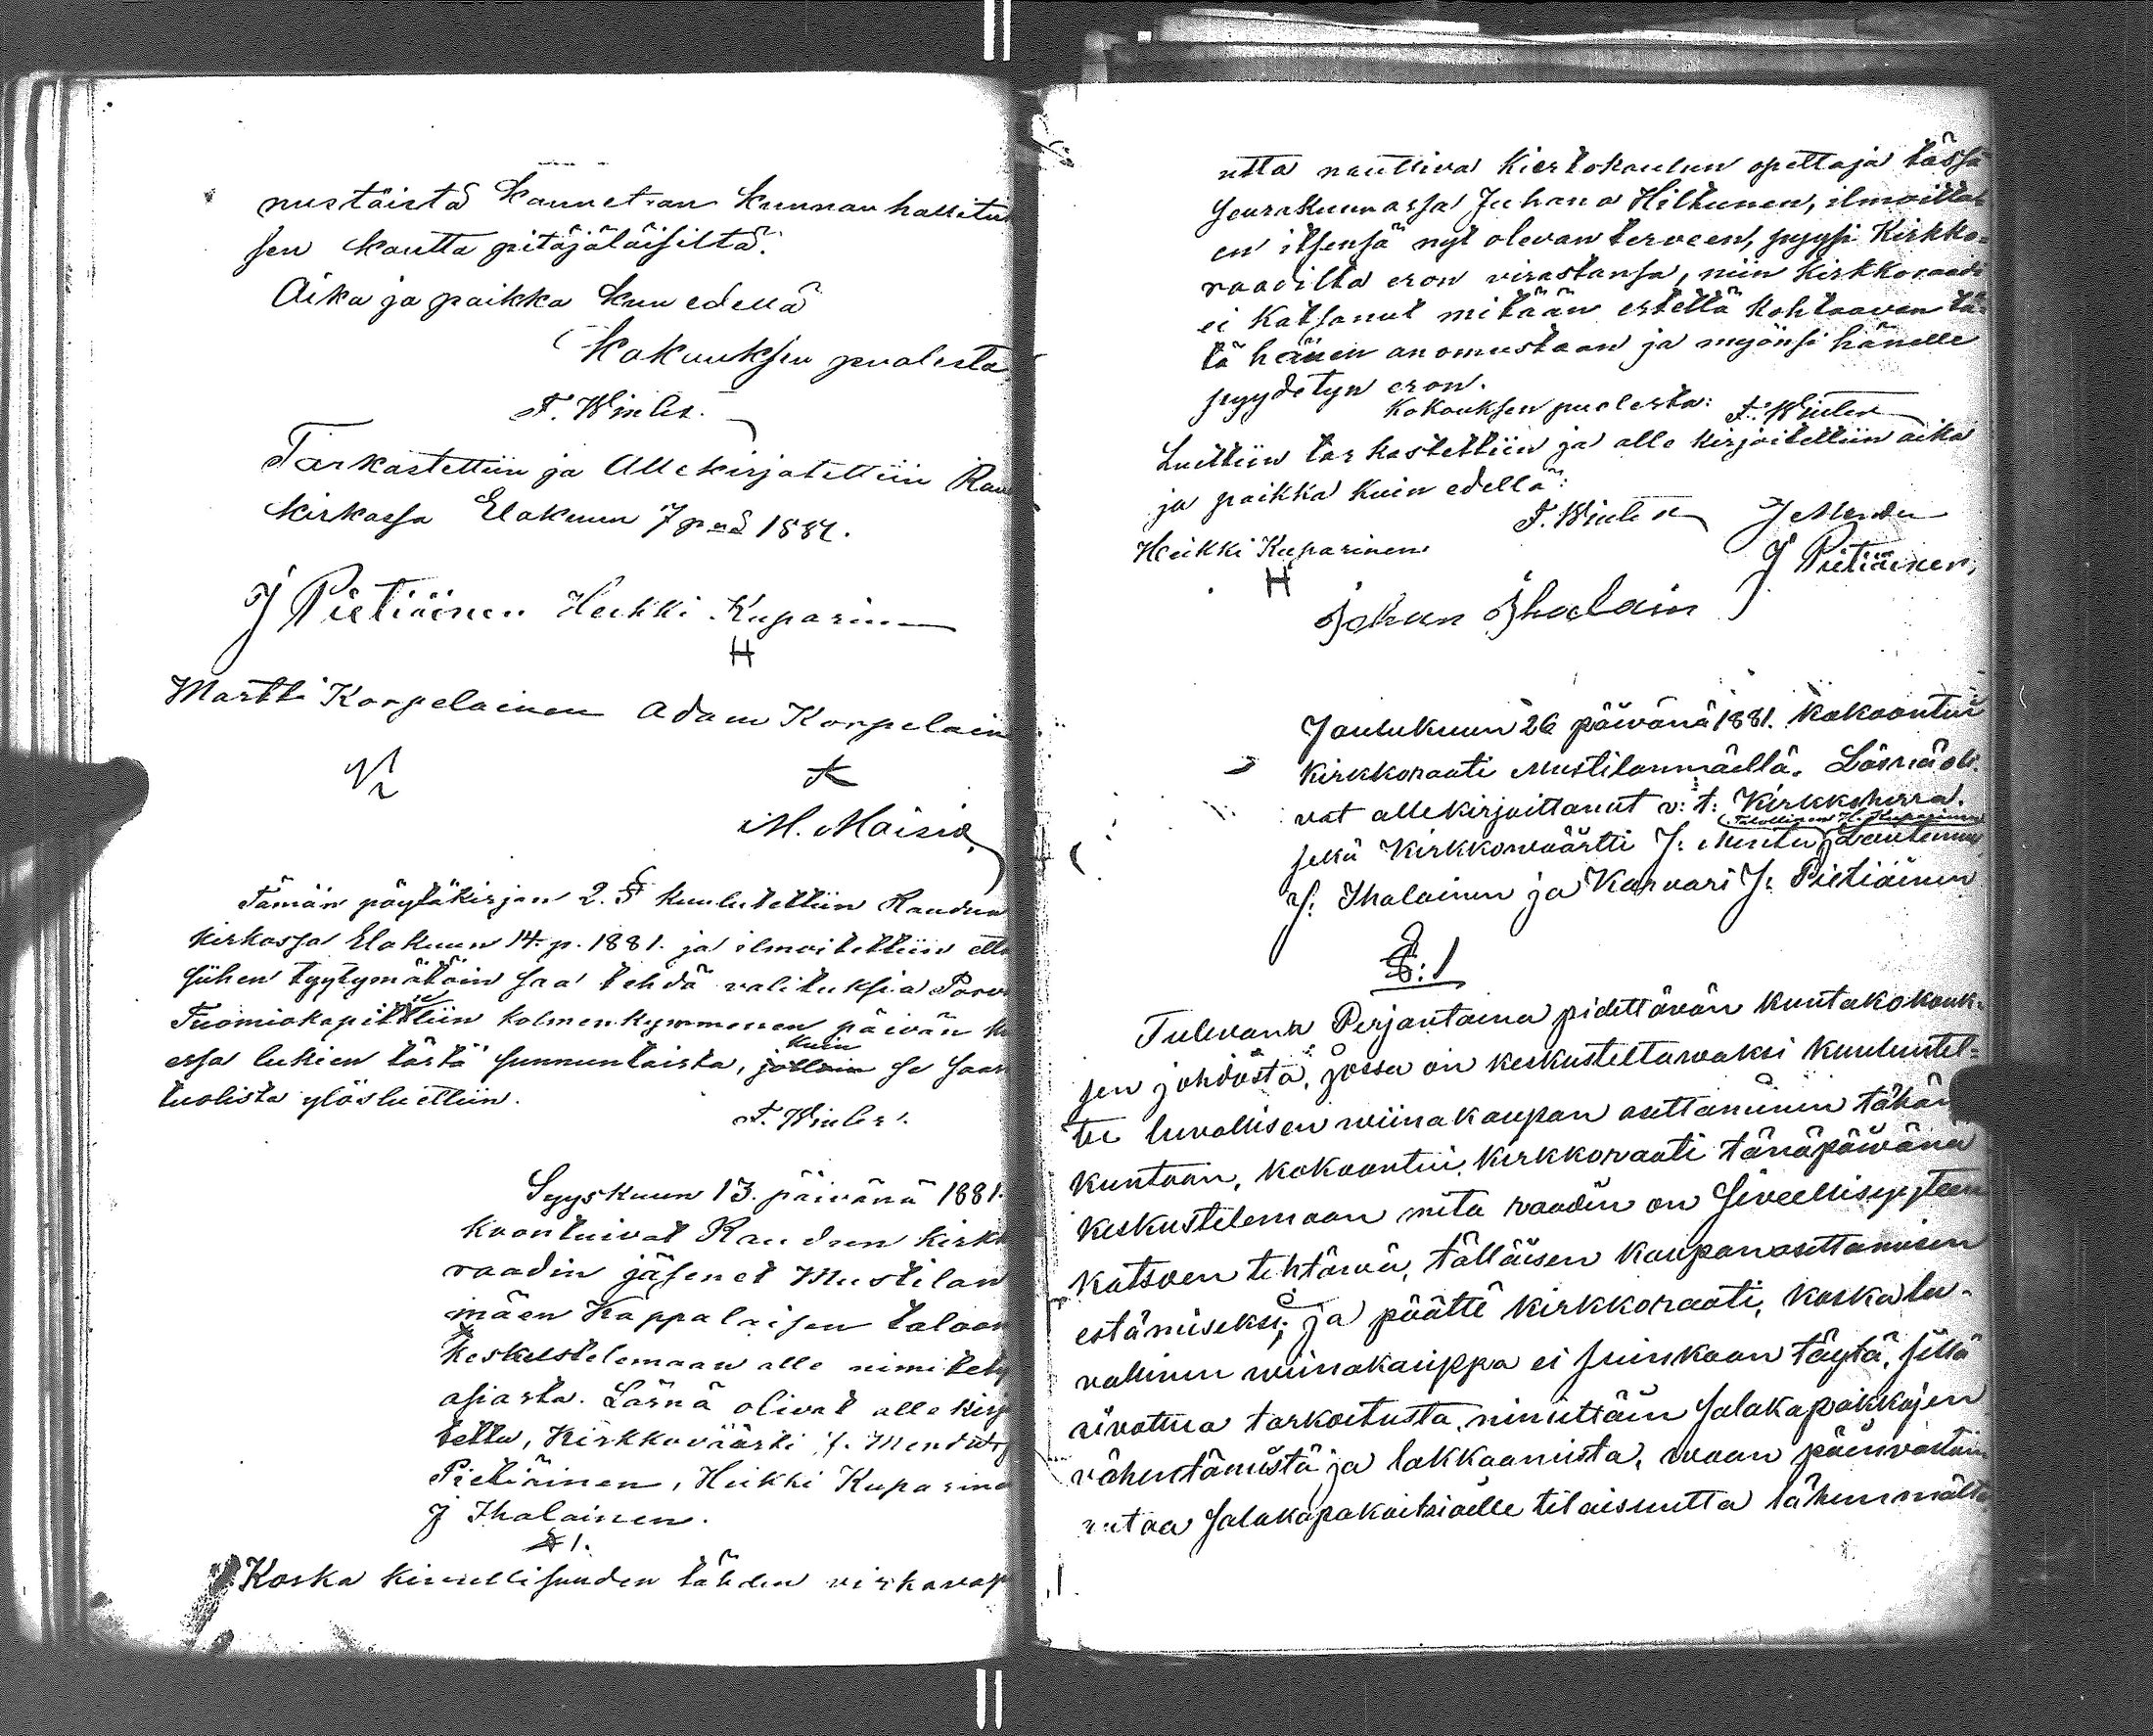 nustäistä kannetaan kunnan hallituk
sen kautta pitäjäläisiltä.
Aika ja paikka kun edellä
Kokouksen puolesta
F. Winter.
Tarkastettiin ja Allekirjotettiin Rau
kirkossa Elokuun 7 pnä 1881.
J Pietiäinen Heikki Kuparinen
H
Martti Korpelainen Adam Korpelain
M. Moisio
Tämän pöytäkirjan 2. § kuulutettiin Raudun
kirkossa Elokuun 14. p. 1881. ja ilmoitettiin että
siihen tyytymätöin saa tehdä valituksia Porvo
Tuomiokapitteliin kolmenkymmenen päivän ku
essa lukien tästä sunnuntaista, jolloin kuin se saar
tuolista ylösluettiin.
F. Winter.
Syyskuun 13. päivänä 1881.
koontuivat Raudun kirkk
raadin jäsenet Mustilan
mäen Kappalaisen taloon
Keskustelemaan alle nimitety
asiasta. Läsnä olivat alle kirjo
tettu, Kirkkoväärti J. Mentu, J
Pietiäinen, Heikki Kuparine
J Ihalainen.
§ 1.
Koska kivullisuuden tähden virkavap
utta nauttiva Kiertokoulun opettaja tässä
seurakunnassa Juhana Hiltunen, ilmoittat
en itsensä nyt olevan terveen, pyysi Kirkko=
raadilta eron virastansa, niin kirkkoraadi
ei katsonut mitään estettä kohtaavan tä=
tä hänen anomustaan ja myönsi hänelle
pyydetyn eron.
Kokouksen puolesta: F. Winter
Luettiin tarkastettiin ja alle kirjoitettiin aika
ja paikka kuin edellä:
F. Winter J Mentu
Heikki Kuparinen J Pietiäinen,
H
Johan Ihalain
Joulukuun 26 päivänä 1881. kokoontui
kirkkoraati Mustilanmäellä. Läsnä oli.
vat allekirjoittanut v: t: Kirkkoherra.
Talollinen H. Kuparinen
sekä Kirkkowäärtti J: Mentu, Lautamies
J: Ihalainen ja Karvari J: Pietiäinen
§:1
Tulevana Perjantaina pidettävän kuntakokouk-
sen johdosta, jossa on keskusteltawaksi kuulutet=
tu luvallisen wiinakaupan asettaminen tähän
kuntaan, kokoontui kirkkoraati tänäpäiwänä
keskustelemaan mitä raadin on siveellisyyteen
katsoen tehtävä, tälläisen kaupan asettamisen
estämiseksi; ja päätti kirkkoraati, koska lu-
vallinen wiinakauppa ei suinkaan täytä, sillä
aivottua tarkoitusta, nimittäin salakapakkojen
vähentämistä ja lakkaamista, waan päinvastoin
antaa salakapakoitsioille tilaisuutta lähemmältä